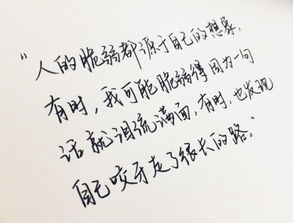 “人的脆弱都源于自己的想象，
有时，我可能脆弱得因为一句
话就泪流满面，有时，也发现
自己咬牙走了很长的路。”